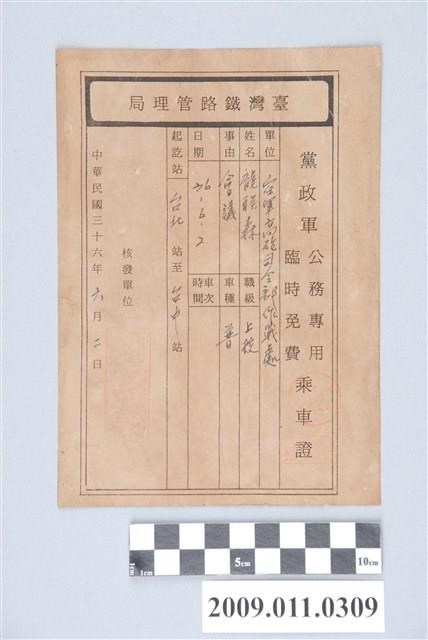 局理管路鐵灣臺
黨政軍 公務專用 臨時免費 乘車證
單位 空軍高砲司令部作戰處
姓名 龍騤森 職級 上校
事由 會議 車種 普
日期 36.6.2 車次 時間
起訖站 台北 站至 台中 站
核發單位
中華民國三十六年六月二日
5cm
10cm
1cm
1cm
2009.011.0309